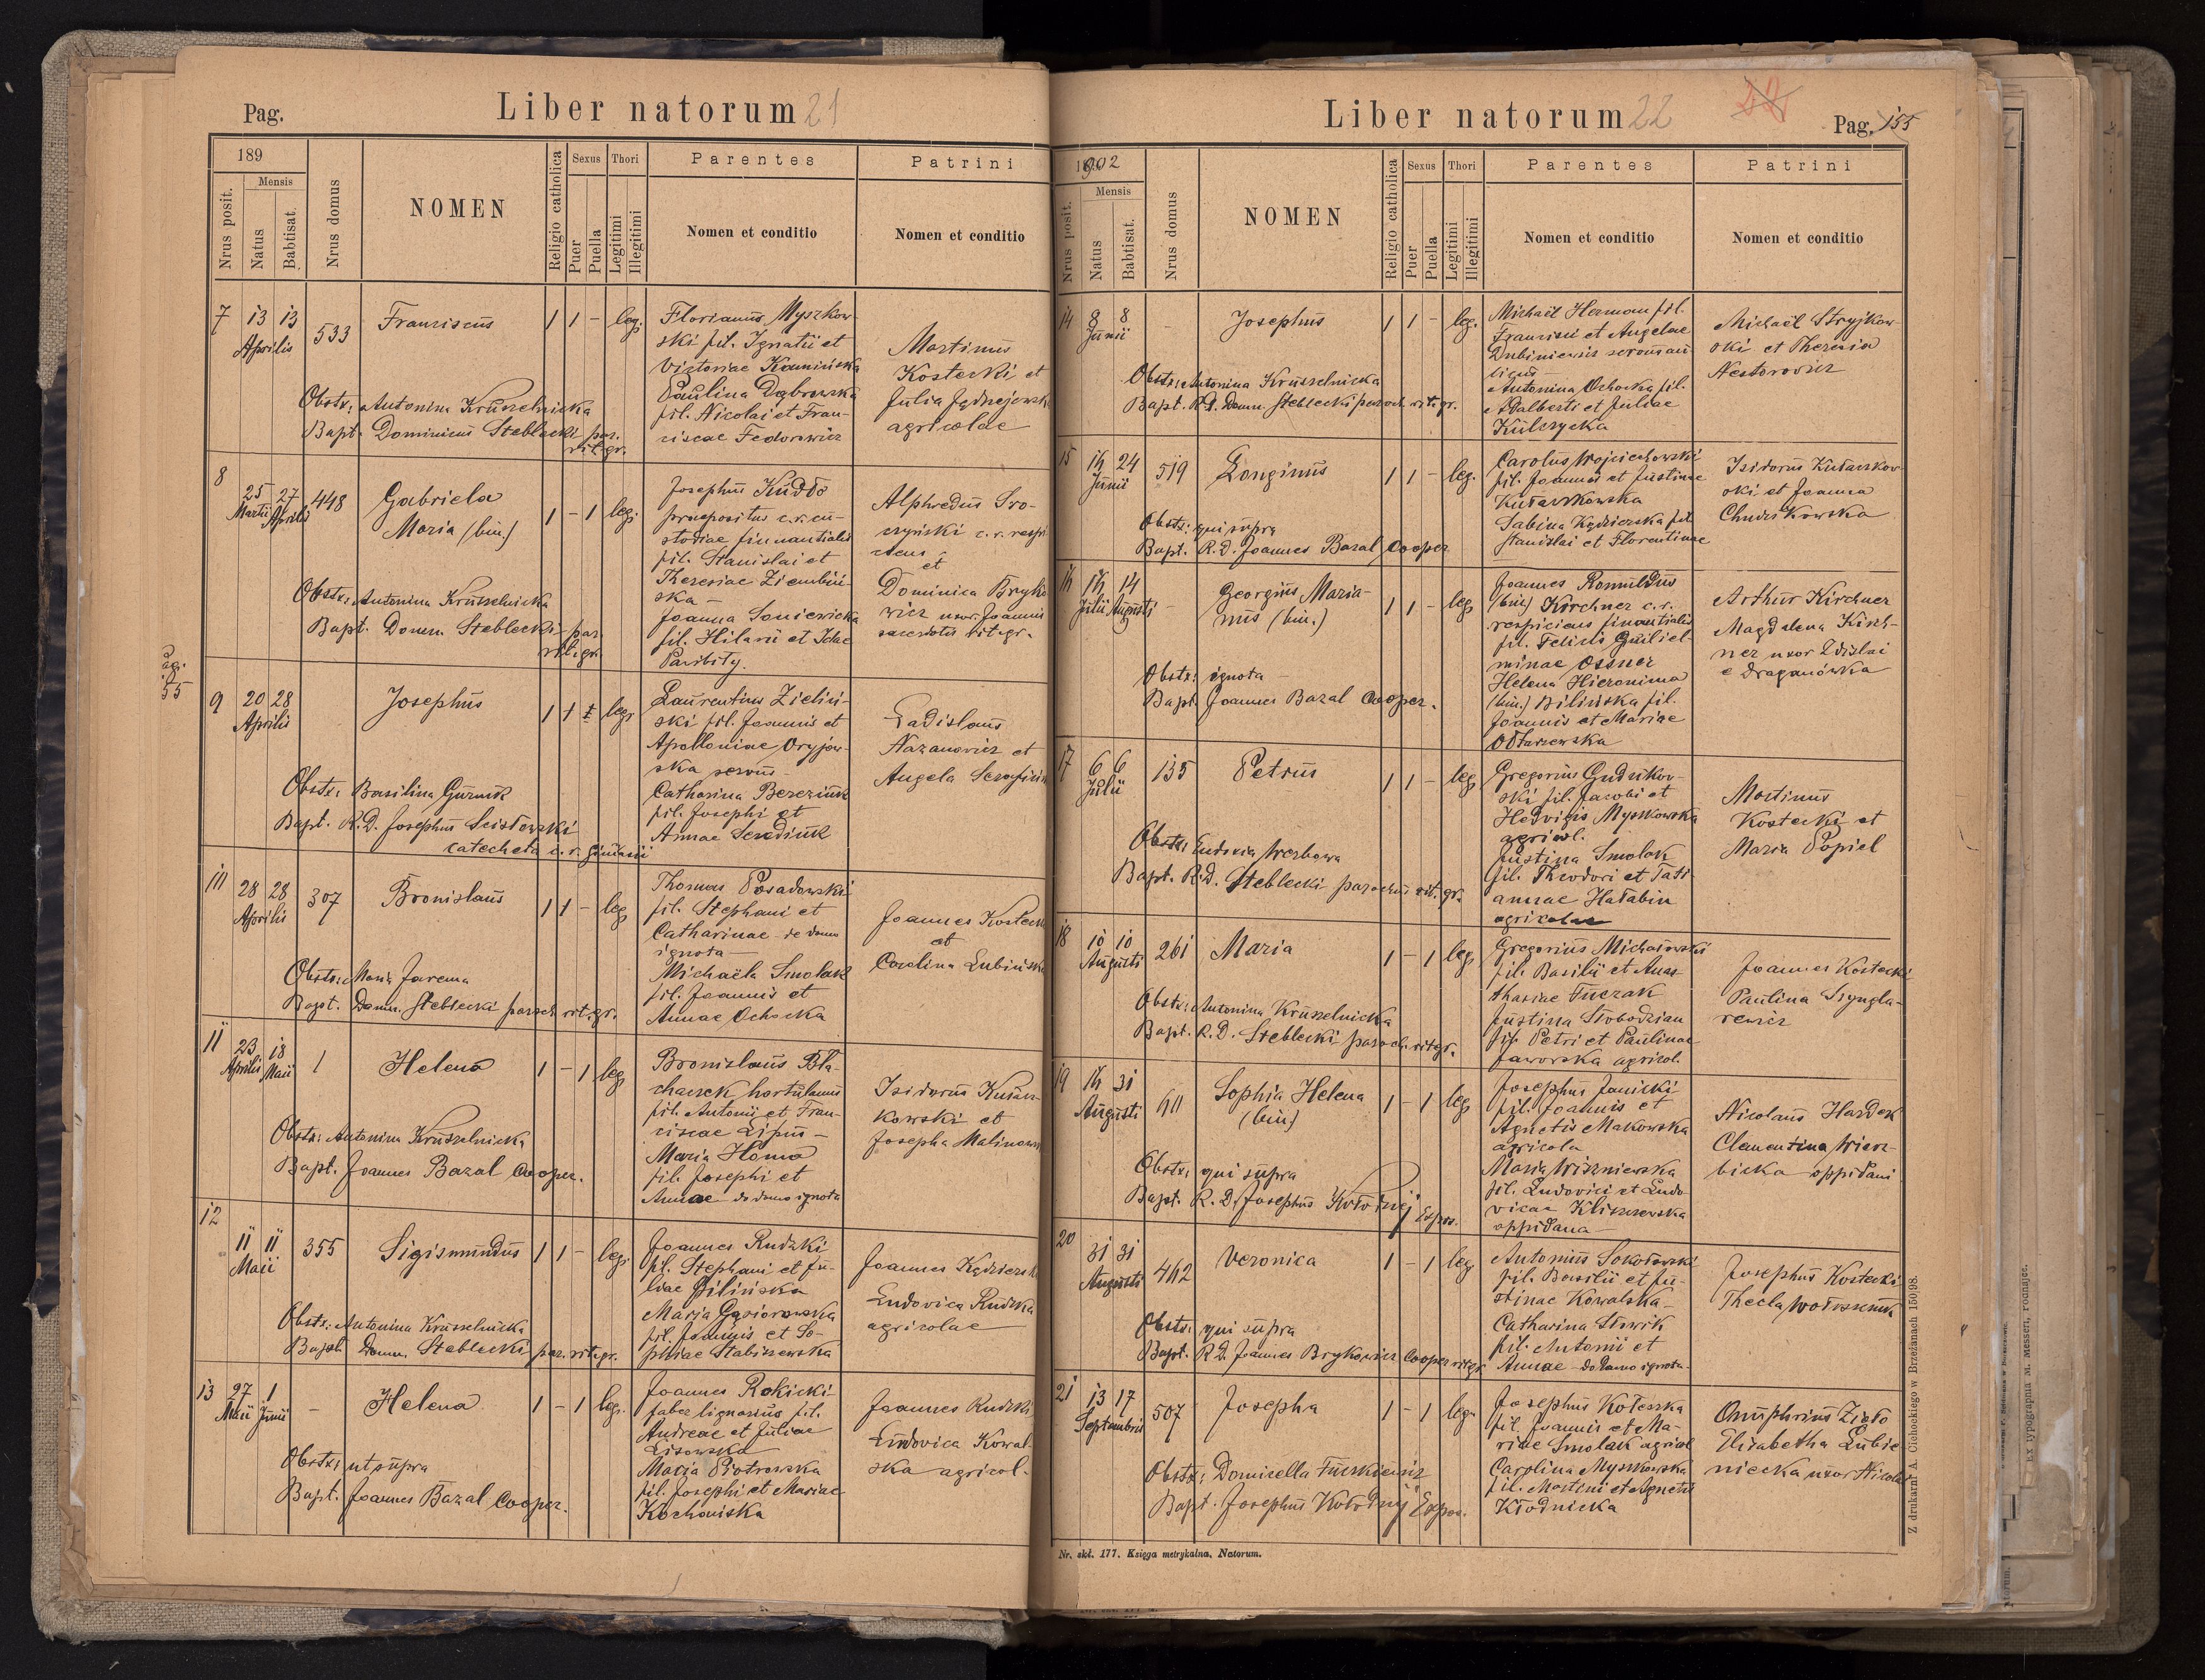 Pag.
Liber natorum 21
189
Mensis
Nrus posit.
Natus
Babtisat.
Nrus domus
NOMEN
Religio catholica
Sexus
Puer
Puella
Thori
Legitimi
Illegitimi
Parentes
Nomen et conditio
Patrini
Nomen et conditio
7 13 13 Aprilis 533 Franciscus 1 1 - leg.
Florianus Myszkow-
ski fil. Ignatii et
Victoriae Kamińska
Paulina Dąbrowska
fil. Nicolai et Fran-
ciscae Fedorowicz
Martinus
Kostecki et
Julia
agricolae
Obstx: Antonina Krusselnicka
Bapt. Dominicus Steblecki par.
rit. gr.
8 25 Martii 27 Aprilis 448 Gabriela
Maria (bin.) 1 - 1 leg.
Josephus
praepositus c. r. cu-
stodiae finnantialis
fil. Stanislai et
Theresiae Ziembiń-
ska -
Joanna Soniewicka
fil. Hilarii et Idae
Alphredus Sro-
czyński c. r. respi-
ciens
et
Dominica Bryko-
wicz uxor Joannis
sacerdotis rit. gr.
Obstx: Antonina Krusselnicka
Bapt. Domin. Steblecki par.
rit. gr.
Pag.
155
9 20 28 Aprilis Josephus 1 1 leg.
Laurentius Zieliń-
ski fil. Joannis et
Apolloniae
ska servus -
Catharina Bereziuk
fil. Josephi et
Annae Serediuk
Ladislaus
Nazarewicz et
Angela
Obstx: Basilina
Bapt. R. D. Josephus
catecheta c. r.
10 28 28 Aprilis 307 Bronislaus 1 1 - leg
Thomas Posadowski
fil. Stephani et
Catharinae - de domo
ignota -
Michaëla Smolak
fil. Joannis et
Annae Ochocka
Joannes Kostecki
et
Carolina Lubińska
Obstx: Maria Jarema
Bapt. Domin. Steblecki paroch. rit. gr.
11 23 Aprilis 18 Maii 1 Helena 1 - 1 leg
Bronislaus Bła-
chaczek hortulanus
fil. Antonii et Fran-
ciscae Lipus -
Maria Homa
fil. Josephi et
Annae de domo ignota
Isidorus
kowski et
Josepha
Obstx: Antonina Krusselnicka
Bapt. Joannes Bazal Cooper.
12 11 11 Maii 355 Sigismundus 1 1 - leg.
Joannes Rudzki
fil. Stephani et Ju-
liae Bilińska
Maria Gąsiorowska
fil. Joannis et So-
phiae Stabiszewska
Joannes
Ludovica Rudzka
agricolae
Obstx: Antonina Krusselnicka
Bapt Domin. Steblecki par. rit. gr.
13 27 Maii 1 Junii - Helena 1 - 1 leg.
Joannes Rokicki
faber lignarius fil.
Andreae et Juliae
Lisowska
Maria Piotrowska
fil. Josephi et Mariae
Kochańska
Joannes Rudzki
Ludovica Kowal-
ska agricol.
Obstx: ut supra
Bapt. Joannes Bazal Cooper.
Liber natorum 22
Pag. 155
1902
Mensis
Nrus posit.
Natus
Babtisat.
Nrus domus
NOMEN
Religio catholica
Sexus
Puer
Puella
Thori
Legitimi
Illegitimi
Parentes
Nomen et conditio
Patrini
Nomen et conditio
14 8 8 Junii - Josephus 1 1 - leg.
Michaël Herman fil.
Francisci et Angelae
Dubiniewicz
Antonina Ochocka fil.
Adalberti et Juliae
Kulczycka
Michaël Stryjkow-
ski et Theresia
Nestorowicz
Obstx: Antonina Krusselnicka
Bapt. R. D. Domin. Steblecki paroch. rit. gr.
15 16 24 Junii 519 Longinus 1 1 - leg.
Carolus Wojciechowski
fil. Joannis et Justinae
Sabina Kędzierska fil.
Stanislai et Florentinae
Isidorus
ski et Joanna
Obstx: qui supra
Bapt. R. D. Joannes Bazal Cooper
16 16 Julii 14 Augusti - Georgius Maria-
nus (bin.) 1 1 - leg
Joannes Romuldus
(bin) Kirchner c. r.
respiciens finantialis
fil. Felicis Guiliel-
minae Ossner
Helena Hieronima
(bin.) Bilińska fil.
Joannis et Mariae
Ołtarzewska
Arthur Kirchner
Magdalena Kirch-
ner uxor Zdislai
e Draganówka
Obstx: ignota -
Bapt Joannes Bazal Cooper.
17 6 6 Julii 135 Petrus 1 1 - leg
Gregorius
ski fil. Jacobi et
Hedvigis Myszkowska
agricol.
Justina Smolak
fil. Theodori et Tati-
annae Hałabin
agricolae
Martinus
Kostecki et
Maria Popiel
Obstx: Eudoxia Werbowa
Bapt. R. D. Steblecki parochus rit. gr.
18 10 10 Augusti 261 Maria 1 - 1 leg
Gregorius Michałowski
fil. Basilii et Anas-
thasiae Tuczak
Justina Słobodzian
fil. Petri et Paulinae
Jaworska agricol.
Joannes Kostecki
Paulina Szyngla-
rewicz
Obstx: Antonina Krusselnicka
Bapt. R. D. Steblecki paroch. rit gr.
19 16 31 Augusti 60 Sophia Helena
(bin) 1 - 1 leg
Josephus Janicki
fil. Joannis et
Agnetis Makowska
agricola
Maria Wiszniewska
fil. Ludovici et Ludo-
vicae Kliszewska
oppidana -
Nicolaus Hardek
Clementina Wierz-
bicka oppidani
Obstx: qui supra
Bapt. R. D. Josephus Kołodziej Expos.
20 31 31 Augusti 462 Veronica 1 - 1 leg
Antonius Sokołowski
fil. Basilii et Ju-
stinae Kowalska -
Catharina Słowik
fil. Antonii et
Annae - de domo ignota -
Josephus Kostecki
Thecla
Obstx: qui supra
Bapt. R. D. Joannes Brykowicz Cooper rit gr.
21 13 17 Septembris 507 Josepha 1 - 1 leg.
Josephus
fil. Joannis et Ma-
riae Smolak agricol
Carolina Myszkowska
fil. Martini et Agnetis
Kłodnicka
Onuphrius
Elisabetha Lubie-
niecka uxor Nicolai
Obstx: Domicella
Bapt. Josephus Kołodziej Expos.
Nr. skł. 177. Księga metrykalna. Natorum.
Z drukarni A. Cichockiego w Brzeżanach 150|98.